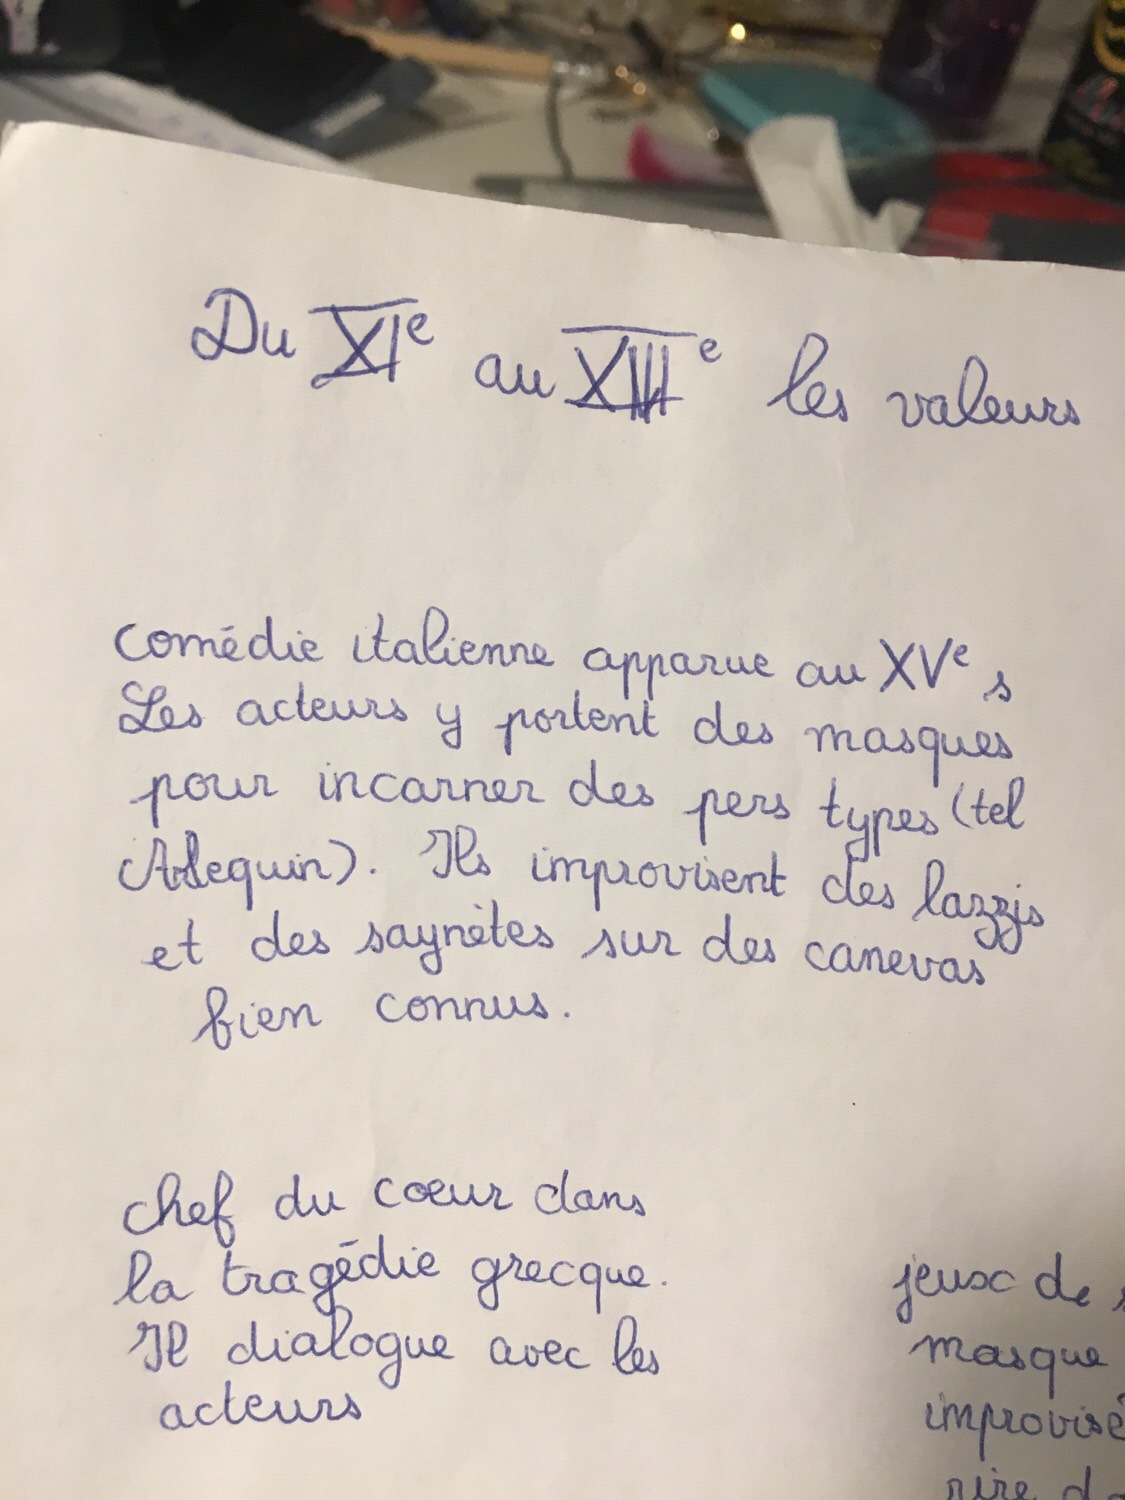 Du XIe au XIIIe les valeurs
comédie italienne apparue au XVe s
Les acteurs y portent des masques
pour incarner des pers types (tel
Arlequin). Ils improvisent des lazzis
et des saynètes sur des canevas
bien connus.
chef du coeur dans
la tragédie grecque.
Il dialogue avec les
acteurs
jeux de
masque
improvisé
rire d